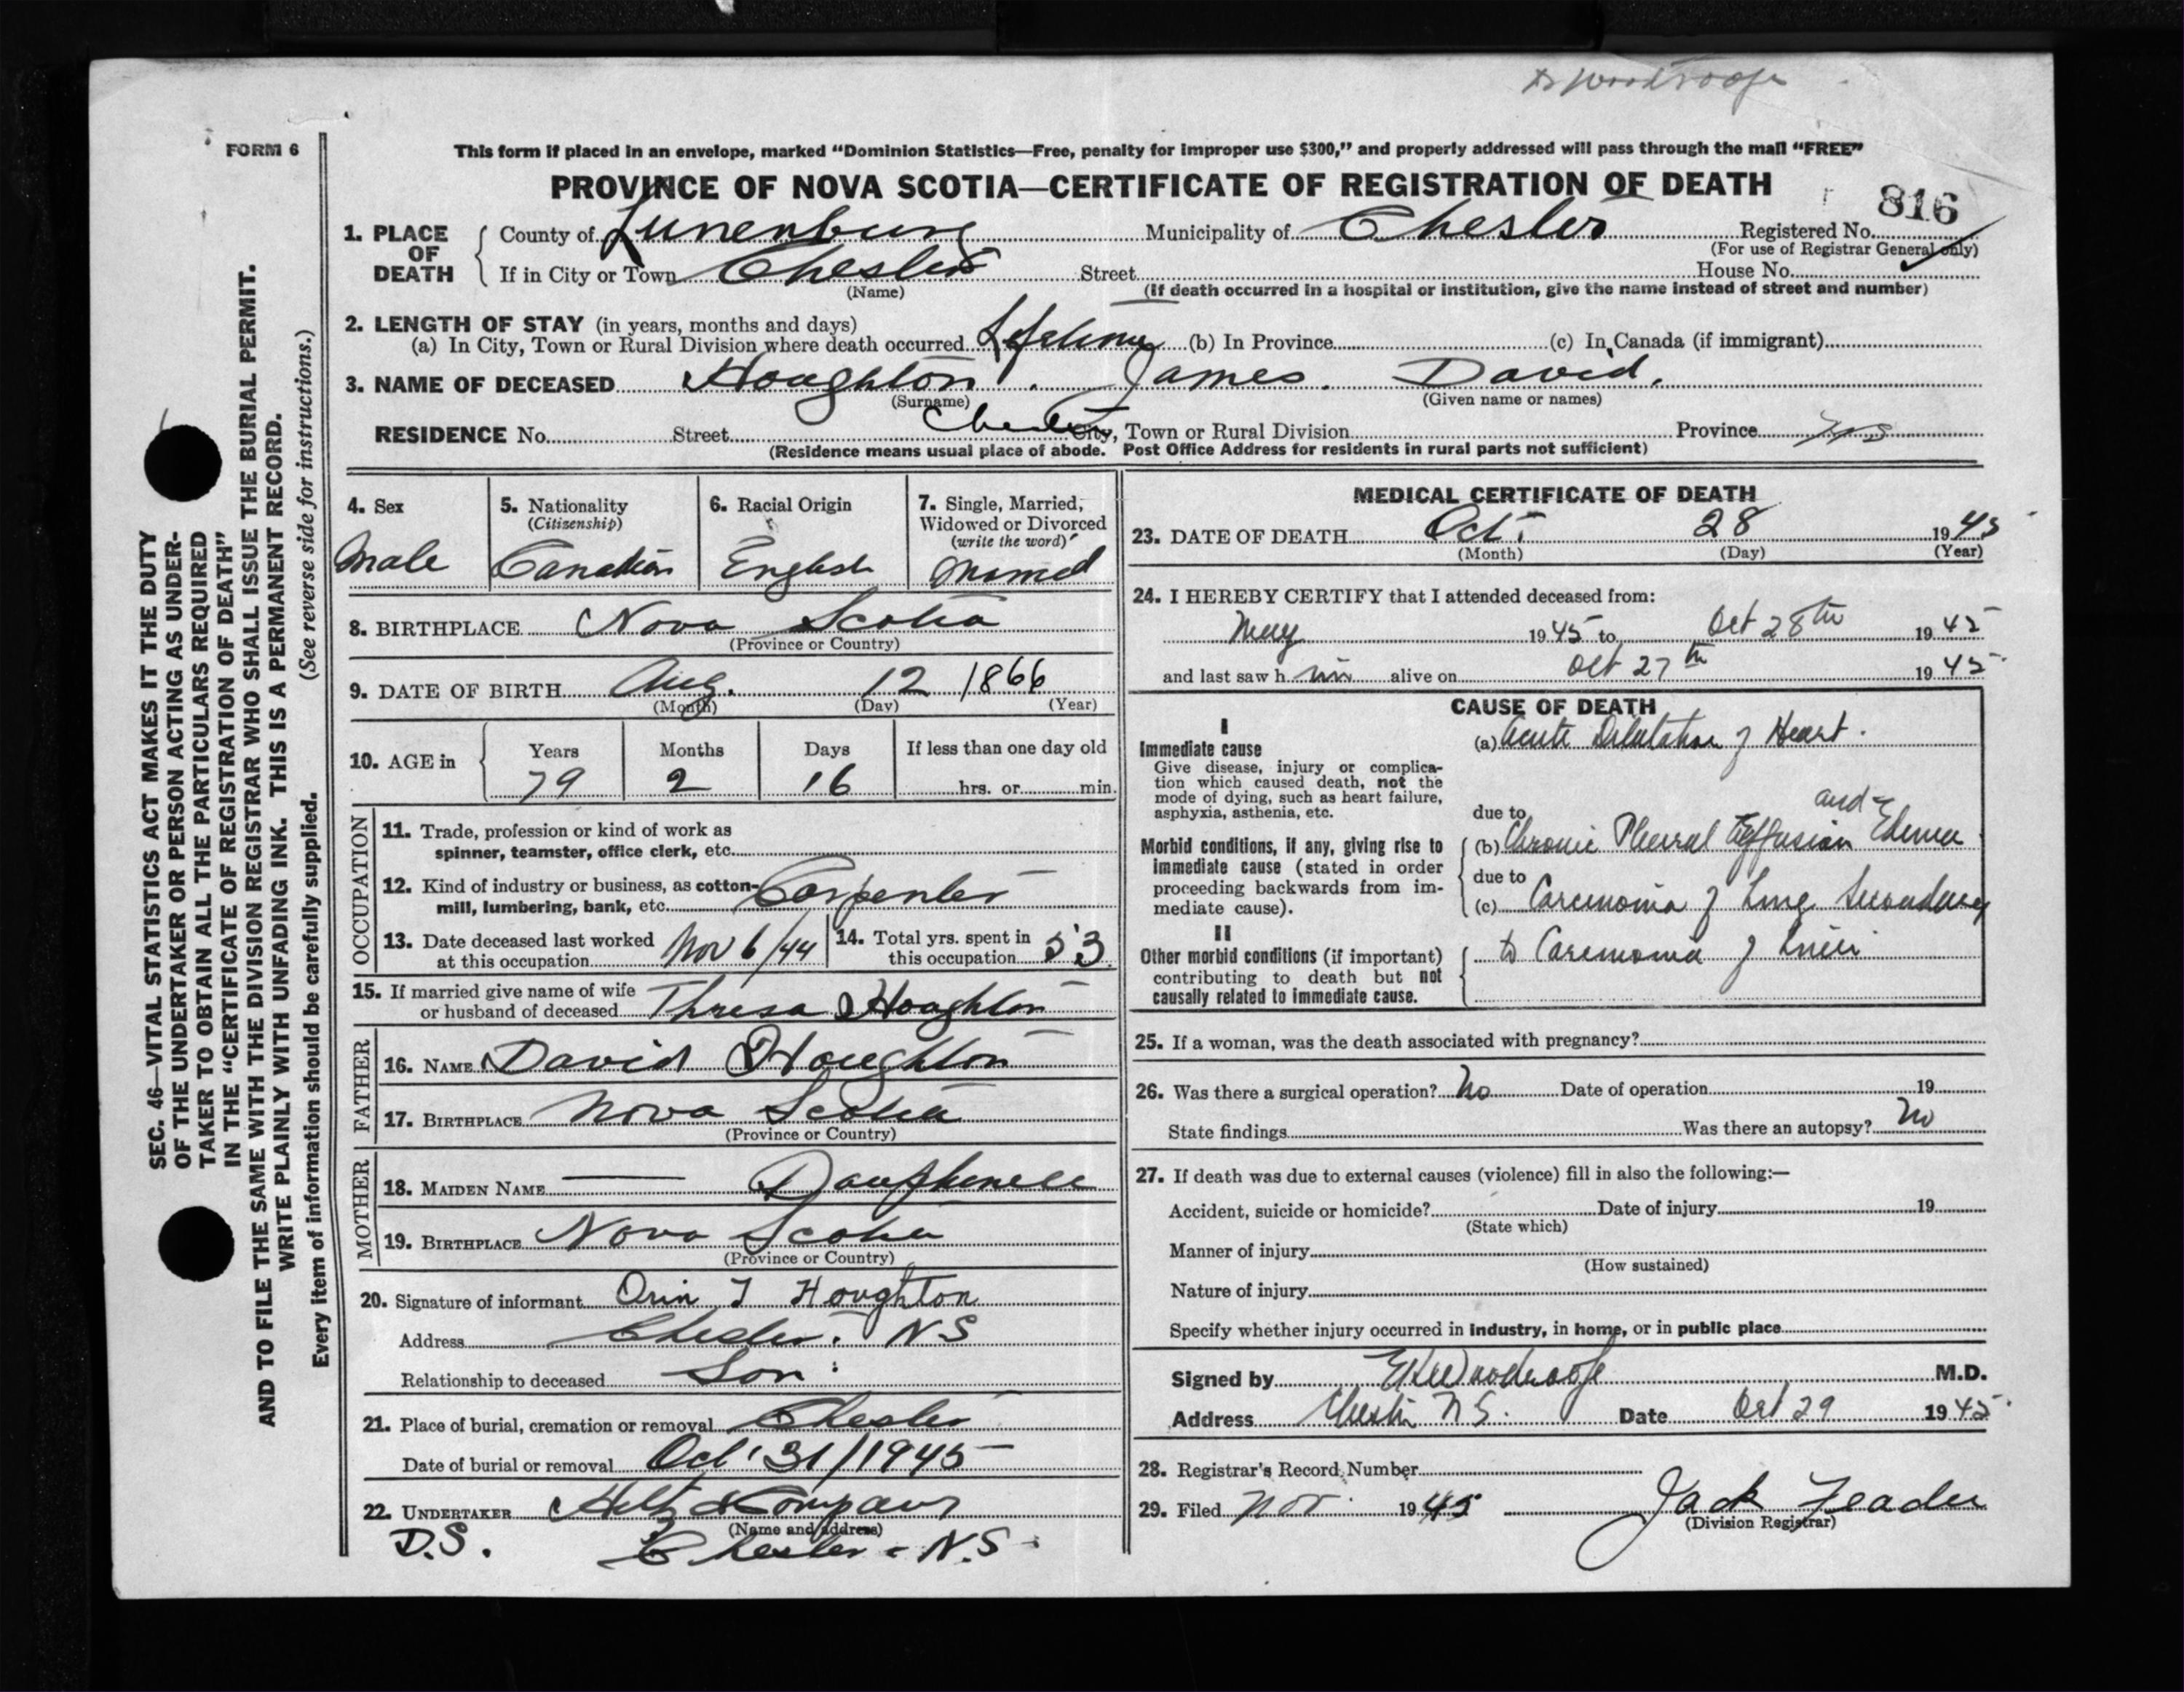 Dr Woodroofe
FORM 6
This form if placed in an envelope, marked “Dominion Statistics—Free, penalty for improper use $300,” and properly addressed will pass through the mail “FREE”
PROVINCE OF NOVA SCOTIA—CERTIFICATE OF REGISTRATION OF DEATH
816
1. PLACE OF DEATH County of Lunenburg Municipality of Chester Registered No.
(For use of Registrar General only)
If in City or Town Chester Street House No.
(Name) (If death occurred in a hospital or institution, give the name instead of street and number)
2. LENGTH OF STAY (in years, months and days)
(a) In City, Town or Rural Division where death occurred Lifetime (b) In Province (c) In Canada (if immigrant)
3. NAME OF DECEASED Houghton. James. David.
(Surname) (Given name or names)
RESIDENCE No. Street Chester City, Town or Rural Division Province NS
(Residence means usual place of abode. Post Office Address for residents in rural parts not sufficient)
4. Sex
Male
5. Nationality
(Citizenship)
Canadian
6. Racial Origin
English
7. Single, Married,
Widowed or Divorced
(write the word)
Married
8. BIRTHPLACE Nova Scotia
(Province or Country)
9. DATE OF BIRTH Aug. 12 1866
(Month) (Day) (Year)
10. AGE in Years Months Days If less than one day old
79 2 16 hrs. or min.
OCCUPATION
11. Trade, profession or kind of work as
spinner, teamster, office clerk, etc.
12. Kind of industry or business, as cotton-
mill, lumbering, bank, etc. Carpenter
13. Date deceased last worked
at this occupation Nov 6/44
14. Total yrs. spent in
this occupation 53
15. If married give name of wife
or husband of deceased Thresa Houghton
FATHER
16. NAME David Houghton
17. BIRTHPLACE Nova Scotia
(Province or Country)
MOTHER
18. MAIDEN NAME — Dauphenee
19. BIRTHPLACE Nova Scotia
(Province or Country)
20. Signature of informant Orin T Houghton
Address Chester. NS
Relationship to deceased Son.
21. Place of burial, cremation or removal Chester
Date of burial or removal Oct 31/1945
22. UNDERTAKER & Company
(Name and address)
D.S. Chester - N.S.
MEDICAL CERTIFICATE OF DEATH
23. DATE OF DEATH Oct. 28 1945
(Month) (Day) (Year)
24. I HEREBY CERTIFY that I attended deceased from:
May 1945 to Oct 28th 1945
and last saw him alive on Oct 27th 1945
CAUSE OF DEATH
I
Immediate cause
Give disease, injury or complica-
tion which caused death, not the
mode of dying, such as heart failure,
asphyxia, asthenia, etc.
(a) Acute Dilatation of Heart.
due to and
Morbid conditions, if any, giving rise to
immediate cause (stated in order
proceeding backwards from im-
mediate cause).
(b) Chronic Pleural Effusion Edema
due to
(c) Carcinoma of Lung Secondary
II
Other morbid conditions (if important)
contributing to death but not
causally related to immediate cause.
to Carcinoma of Liver
25. If a woman, was the death associated with pregnancy?
26. Was there a surgical operation? No Date of operation 19
State findings Was there an autopsy? No
27. If death was due to external causes (violence) fill in also the following:—
Accident, suicide or homicide? Date of injury 19
(State which)
Manner of injury
(How sustained)
Nature of injury
Specify whether injury occurred in industry, in home, or in public place
Signed by Woodroofe M.D.
Address Chester N.S. Date Oct 29 1945
28. Registrar's Record Number
29. Filed Nov. 1945 Jack Zeader
(Division Registrar)
SEC. 46—VITAL STATISTICS ACT MAKES IT THE DUTY
OF THE UNDERTAKER OR PERSON ACTING AS UNDER-
TAKER TO OBTAIN ALL THE PARTICULARS REQUIRED
IN THE “CERTIFICATE OF REGISTRATION OF DEATH”
AND TO FILE THE SAME WITH THE DIVISION REGISTRAR WHO SHALL ISSUE THE BURIAL PERMIT.
WRITE PLAINLY WITH UNFADING INK. THIS IS A PERMANENT RECORD.
Every item of information should be carefully supplied. (See reverse side for instructions.)